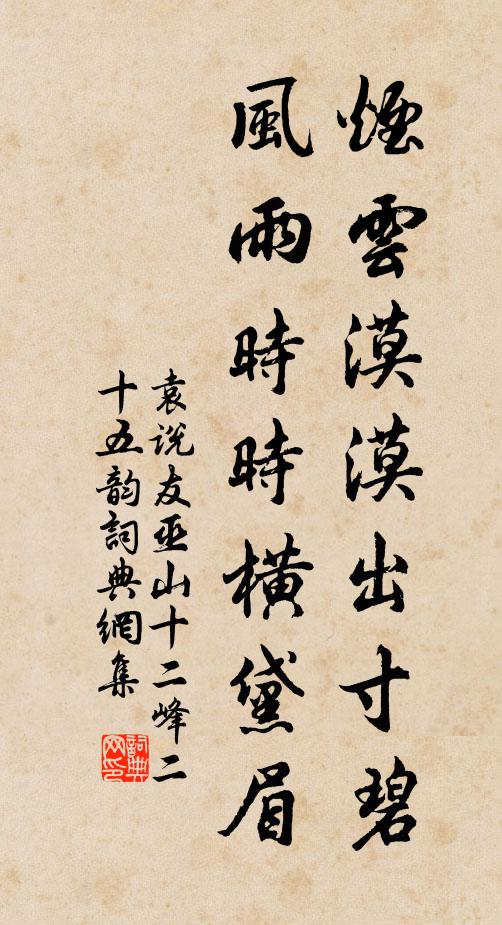 煙雲漠漠出寸碧
風雨時時橫黛眉
袁說友巫山十二峰二
十五韵詞典網集
詞典网印